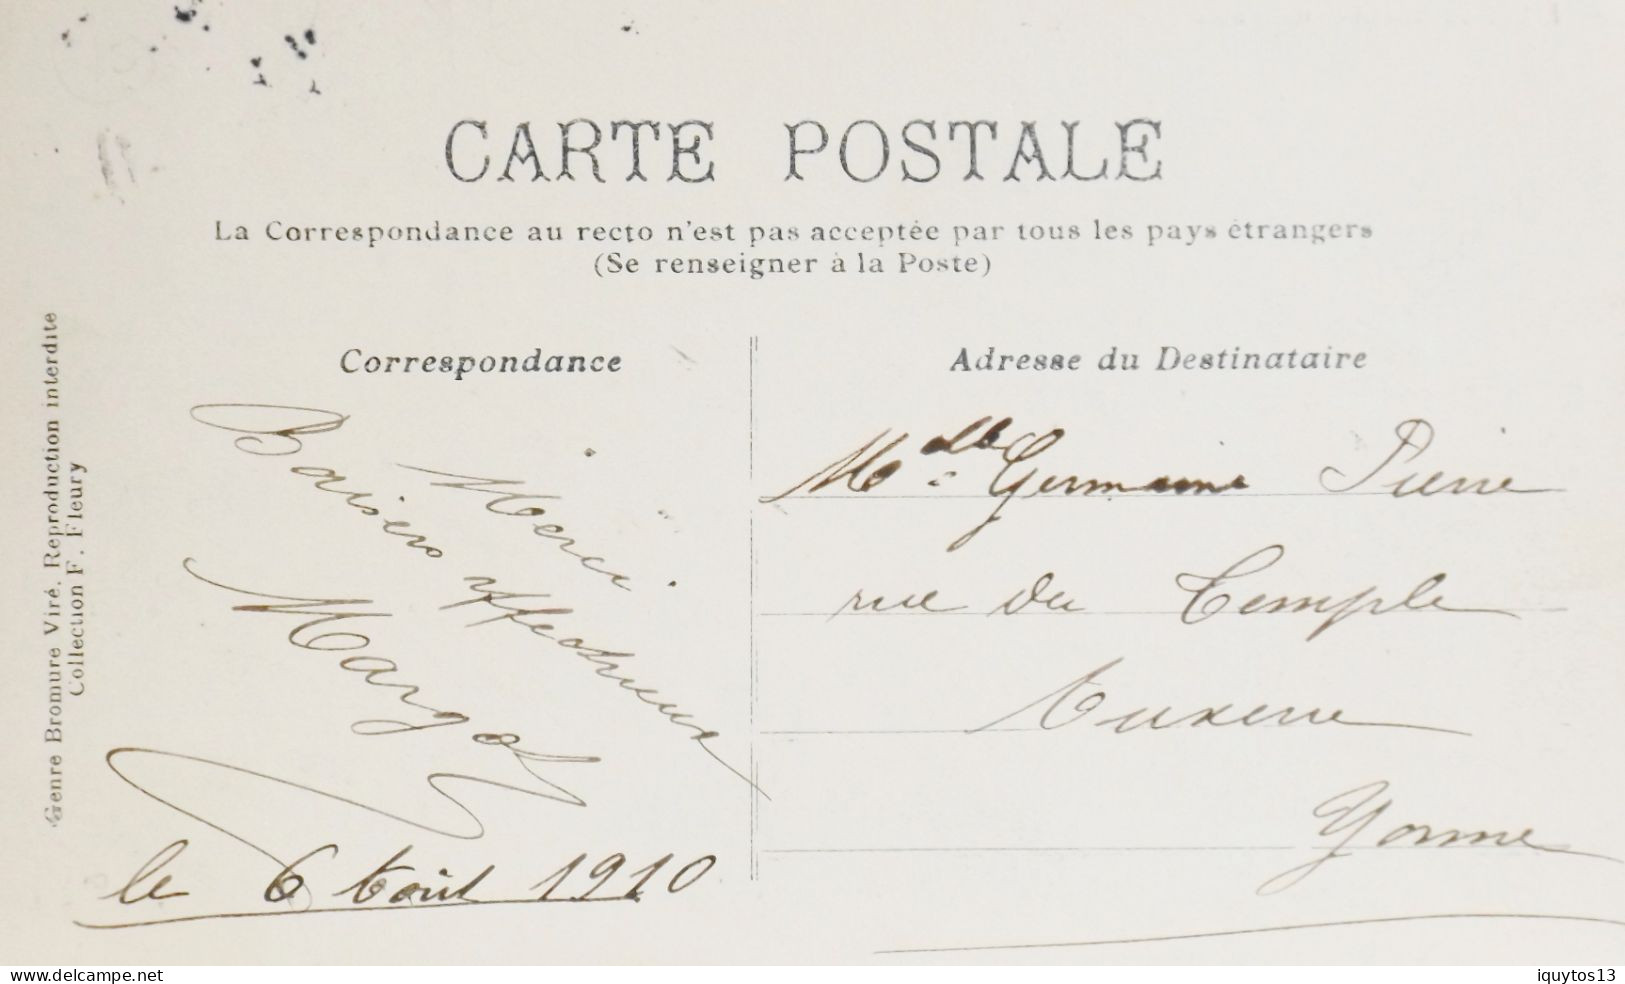 CARTE POSTALE
La Correspondance au recto n'est pas acceptée par tous les pays étrangers
(Se renseigner à la Poste)
Genre Bromure Viré. Reproduction interdite
Collection F. Fleury
Correspondance
Merci
Baisers affectueux
Margot
le 6 Août 1910
Adresse du Destinataire
Melle Germaine Pierre
rue du Temple
Auxerre
Yonne
www.delcampe.net
iquytos13